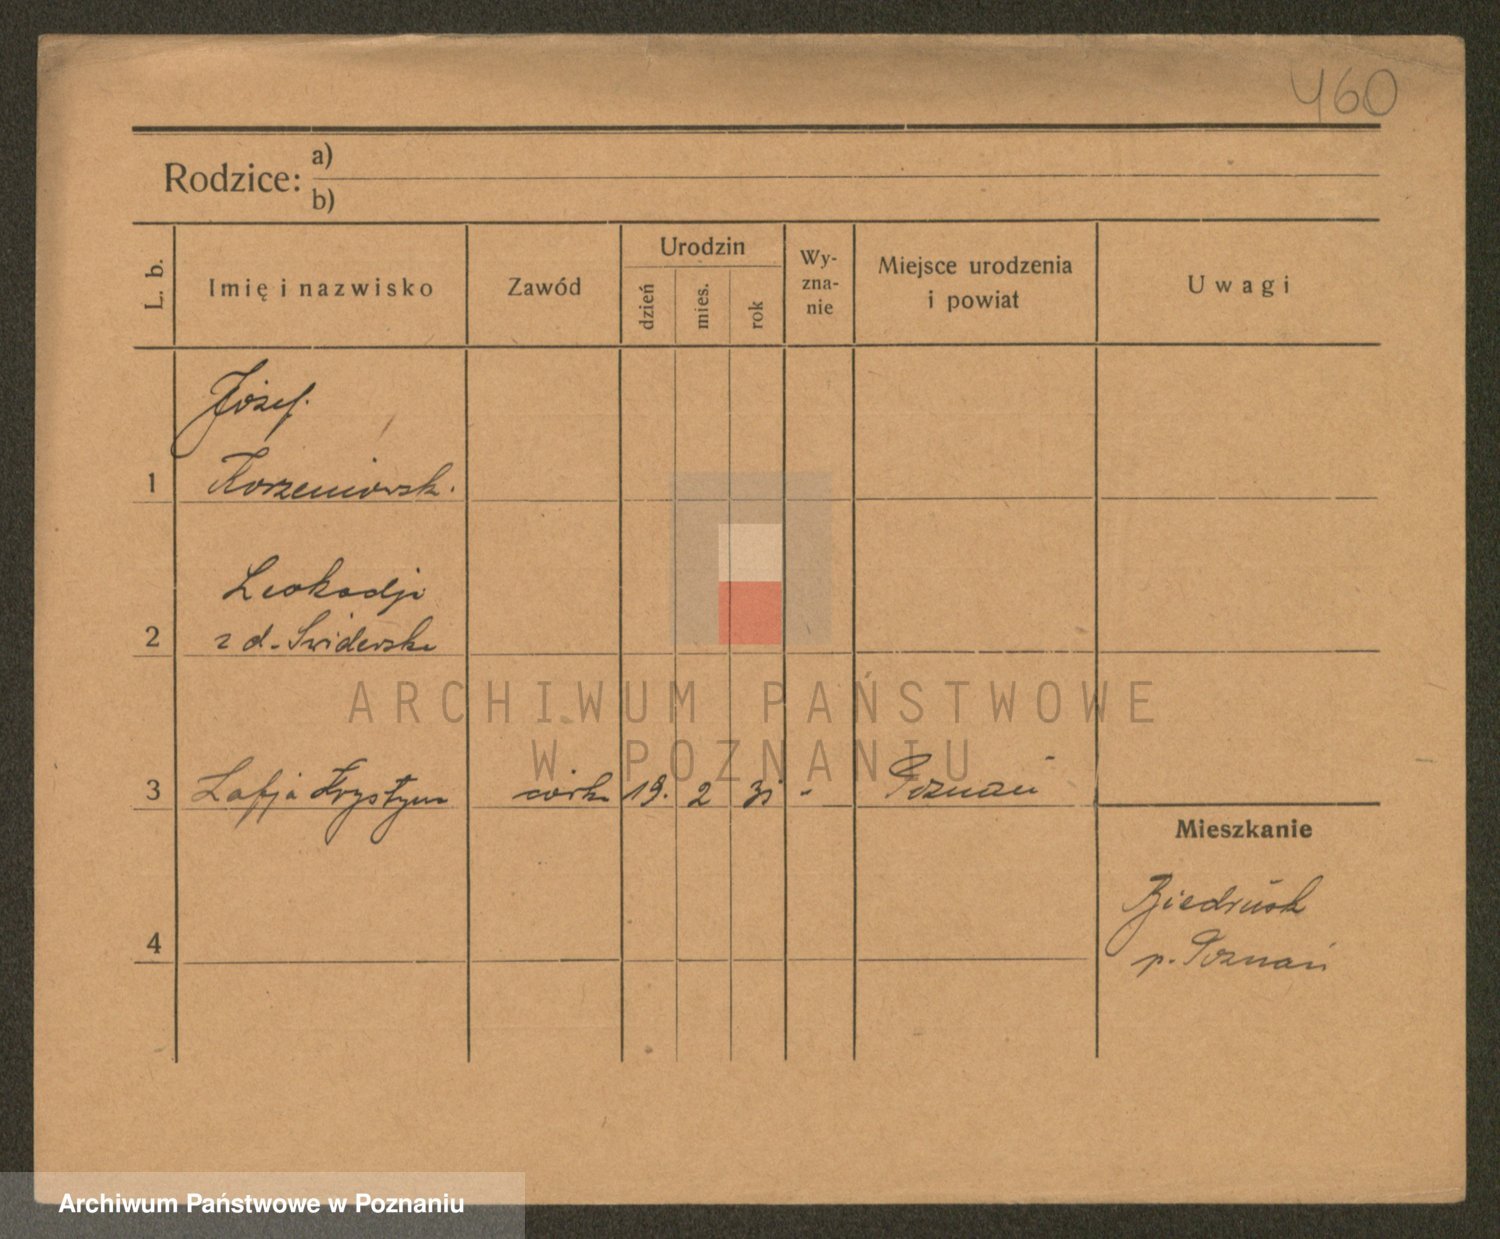 460
Rodzice: a)
b)
L. b.
Imię i nazwisko
Zawód
Urodzin
dzień
mies.
rok
Wy-
zna-
nie
Miejsce urodzenia
i powiat
Uwagi
Józef
1 Korzeniowsk.
Leokadji
2 z d. Swiderska
3 Zofja Krystyna córka 19. 2 31 - Poznań
Mieszkanie
Biedrusk
4
p. Poznań
ARCHIWUM PAŃSTWOWE
W POZNANIU
Archiwum Państwowe w Poznaniu